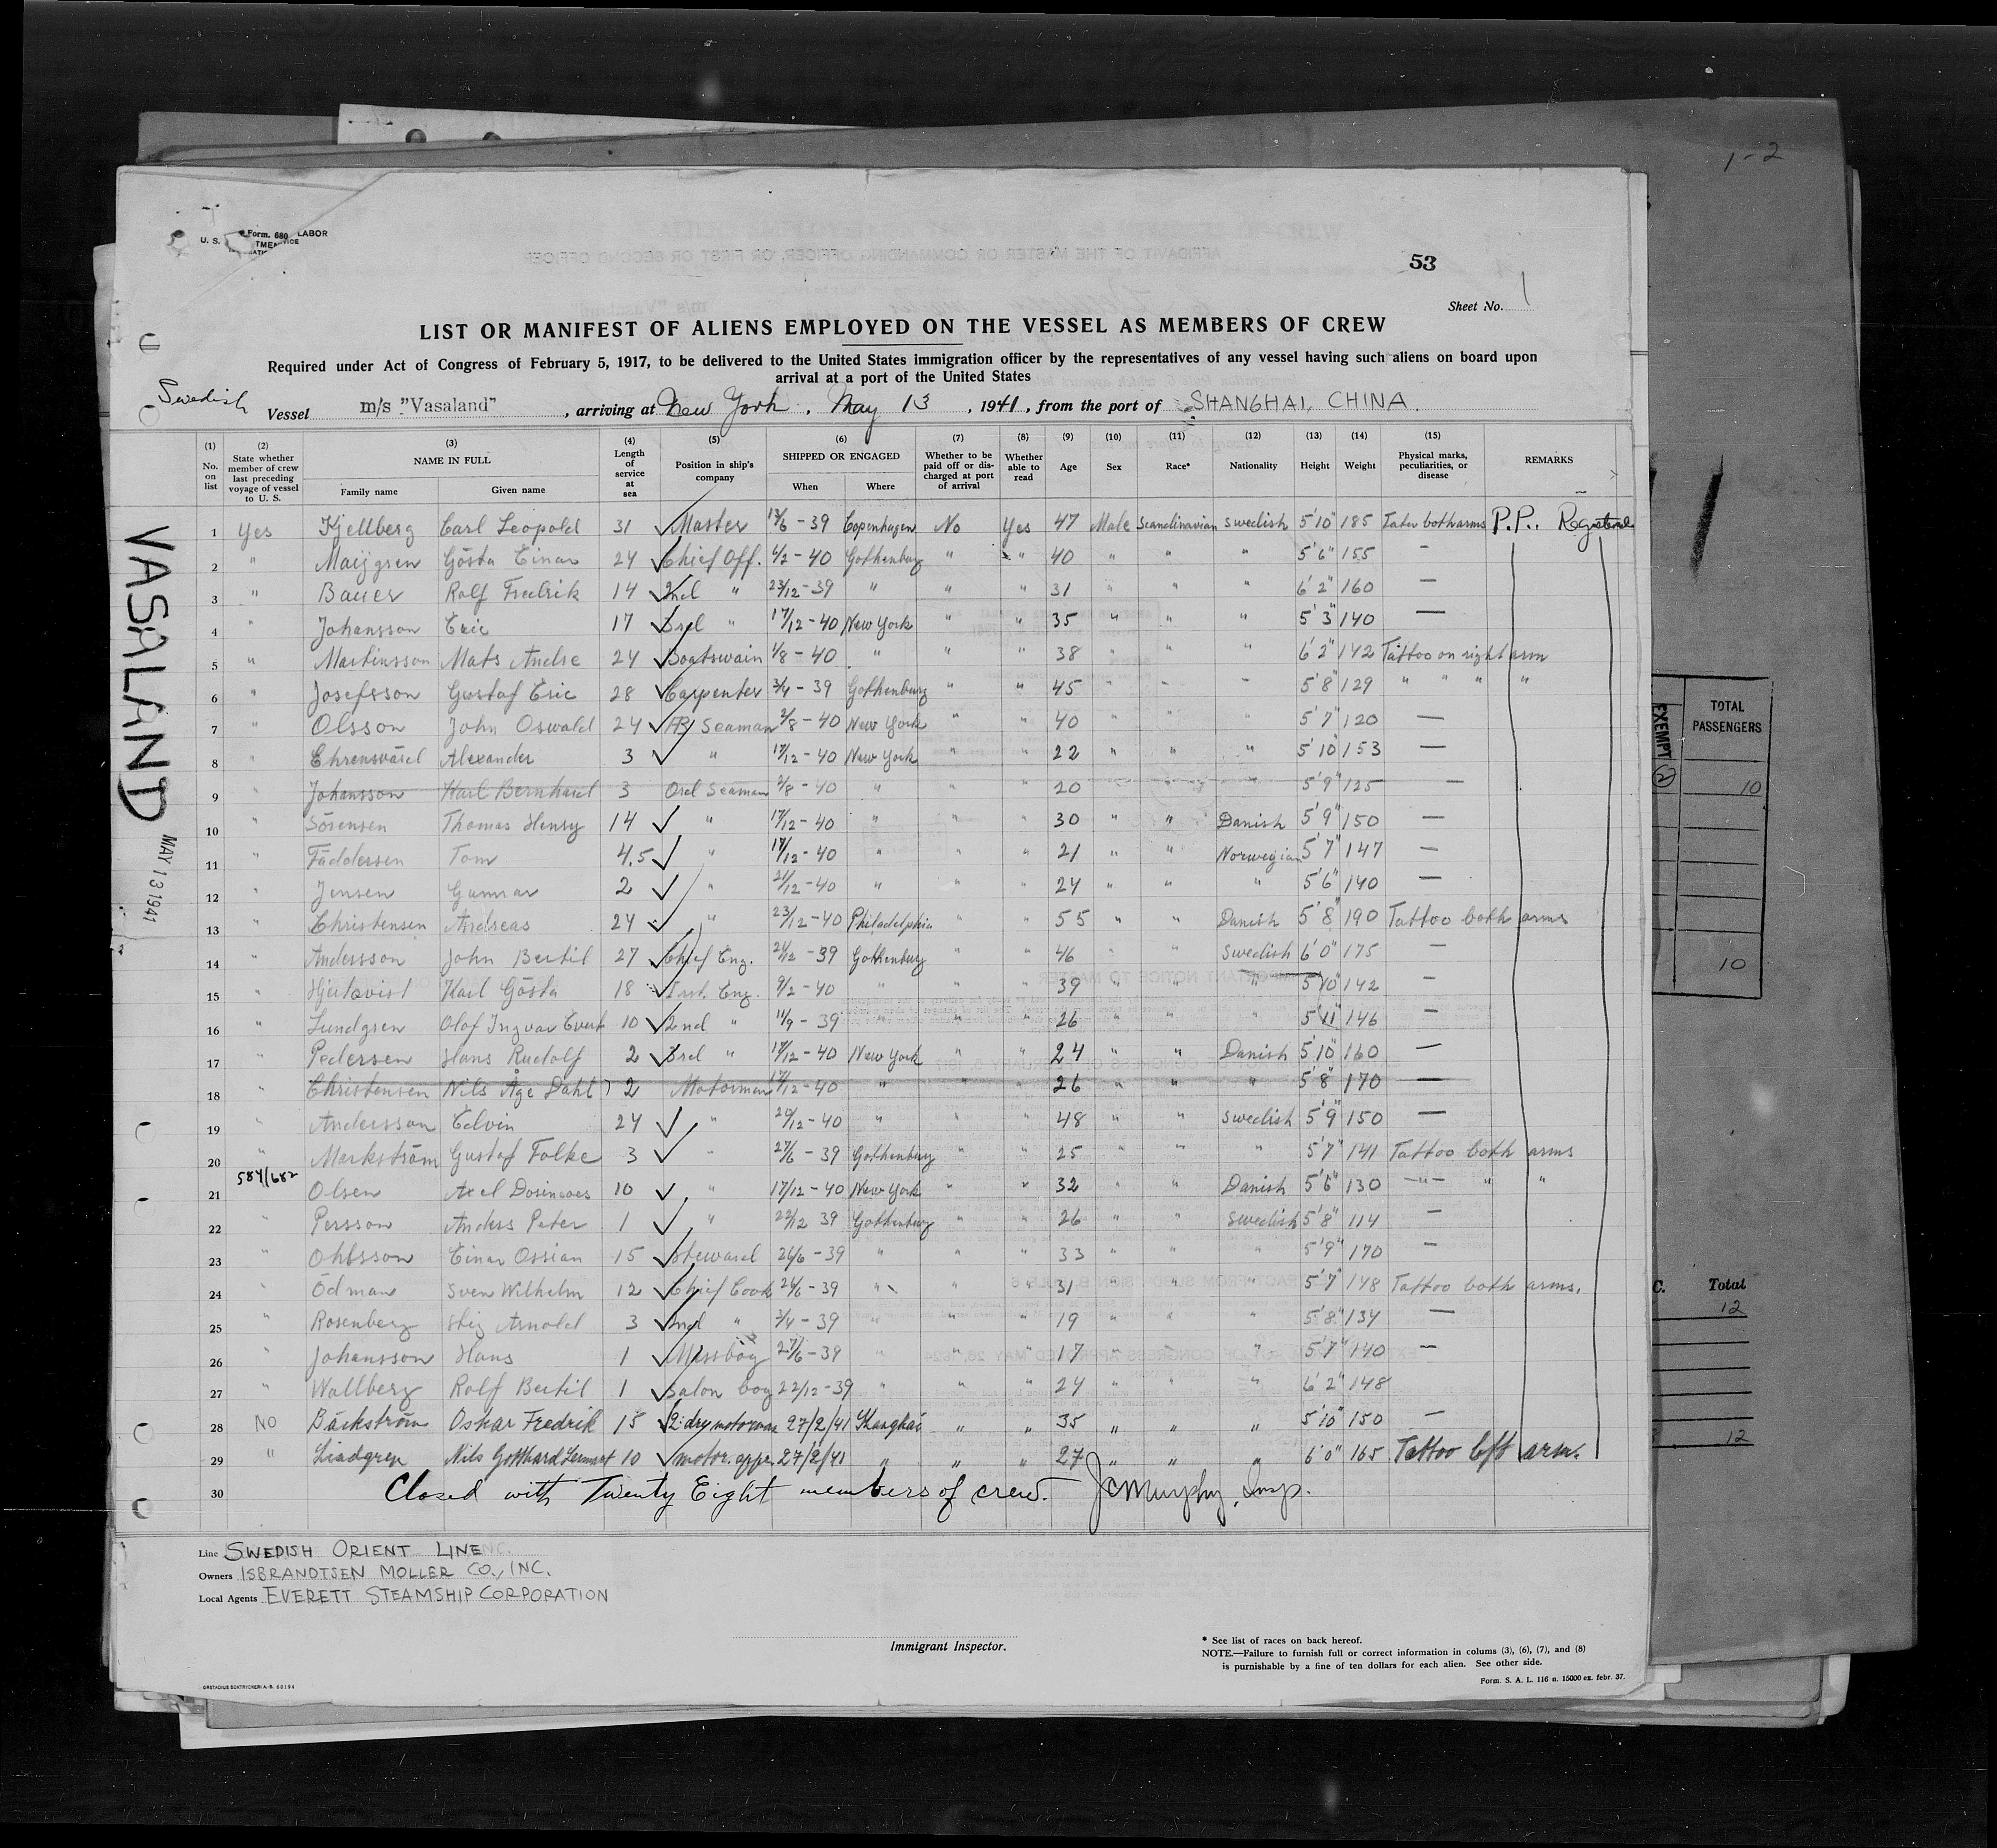 1-2
Form. 680
U. S. LABOR
53
Sheet No. 1
LIST OR MANIFEST OF ALIENS EMPLOYED ON THE VESSEL AS MEMBERS OF CREW
Required under Act of Congress of February 5, 1917, to be delivered to the United States immigration officer by the representatives of any vessel having such aliens on board upon
arrival at a port of the United States
Swedish Vessel m/s "Vasaland", arriving at New York, May 13, 1941, from the port of SHANGHAI, CHINA.
(1) (2) (3) (4) (5) (6) (7) (8) (9) (10) (11) (12) (13) (14) (15)
No. on list | State whether member of crew last preceding voyage of vessel to U. S. | NAME IN FULL | Length of service at sea | Position in ship's company | SHIPPED OR ENGAGED | Whether to be paid off or discharged at port of arrival | Whether able to read | Age | Sex | Race* | Nationality | Height | Weight | Physical marks, peculiarities, or disease | REMARKS
Family name | Given name | When | Where
1 Yes Kjellberg Carl Leopold 31 Master 13/6-39 Copenhagen No Yes 47 Male Scandinavian Swedish 5'10" 185 Tatoo both arms P.P.. Registered
2 " Maijgren Gösta Einar 24 Chief Off. 6/2-40 Gothenburg " " 40 " " " 5'6" 155 —
3 " Bauer Rolf Fredrik 14 2nd " 23/12-39 " " " 31 " " " 6'2" 160 —
4 " Johansson Eric 17 3rd " 17/12-40 New York " " 35 " " " 5'3" 140 —
5 " Martinsson Mats Andre 24 Boatswain 1/8-40 " " " 38 " " " 6'2" 142 Tattoo on right arm
6 " Josefsson Gustaf Eric 28 Carpenter 3/4-39 Gothenburg " " 45 " " " 5'8" 129 " " " "
7 " Olsson John Oswald 24 AB Seaman 2/8-40 New York " " 40 " " " 5'7" 120 —
8 " Ehrensvärd Alexander 3 " 17/12-40 New York " " 22 " " " 5'10" 153 —
9 " Johansson Karl Bernhard 3 Ord Seaman 2/8-40 " " " 20 " " " 5'9" 125 —
10 " Sörensen Thomas Henry 14 " 17/12-40 " " " 30 " " Danish 5'9" 150 —
11 " Faddersen Tom 4.5 " 17/12-40 " " " 21 " " Norwegian 5'7" 147 —
12 " Jensen Gunnar 2 " 21/12-40 " " " 24 " " " 5'6" 140 —
13 " Christensen Andreas 24 " 23/12-40 Philadelphia " " 55 " " Danish 5'8" 190 Tattoo both arms
14 " Andersson John Bertil 27 Chief Eng. 21/12-39 Gothenburg " " 46 " " Swedish 6'0" 175 —
15 " Hjertqvist Karl Gösta 18 1rst. Eng. 9/2-40 " " " 39 " " " 5'10" 142 —
16 " Lundgren Olof Ingvar Evert 10 2nd " 11/9-39 " " " 26 " " " 5'11" 146 —
17 " Pedersen Hans Rudolf 2 3rd " 17/12-40 New York " " 24 " " Danish 5'10" 160 —
18 " Christensen Nils Åge Dahl 2 Motorman 17/12-40 " " " 26 " " " 5'8" 170 —
19 " Andersson Edvin 24 " 20/12-40 " " " 48 " " Swedish 5'9" 150 —
20 " Markström Gustaf Folke 3 " 27/6-39 Gothenburg " " 25 " " " 5'7" 141 Tattoo both arms
584/682
21 Olsen Axel 10 " 17/12-40 New York " " 32 " " Danish 5'6" 130 —"— " "
22 " Persson Anders Peter 1 " 22/12 39 Gothenburg " " 26 " " Swedish 5'8" 114 —
23 " Ohlsson Einar Ossian 15 Steward 26/6-39 " " " 33 " " " 5'9" 170 —
24 " Ödman Sven Wilhelm 12 Chief Cook 26/6-39 " " " 31 " " " 5'7" 148 Tattoo both arms.
25 " Rosenberg Stig Arnold 3 2nd " 3/4-39 " " " 19 " " " 5'8" 134 —
26 " Johansson Hans 1 Messboy 27/6-39 " " " 17 " " " 5'7" 140 —
27 " Wallberg Rolf Bertil 1 Salon boy 22/12-39 " " " 24 " " " 6'2" 148
28 NO Bäckström Oskar Fredrik 15 motorman 27/2/41 Shanghai " " 35 " " " 5'10" 150 —
29 " Lindgren Nils Gotthard Lennart 10 motor. appr. 27/2/41 " " " 27 " " " 6'0" 165 Tattoo left arm.
30 Closed with Twenty Eight members of crew. JCMurphy, Insp.
VASALAND
MAY 13 1941
Line SWEDISH ORIENT LINE
Owners ISBRANDTSEN MOLLER CO., INC.
Local Agents EVERETT STEAMSHIP CORPORATION
Immigrant Inspector.
* See list of races on back hereof.
NOTE.—Failure to furnish full or correct information in colums (3), (6), (7), and (8)
is purnishable by a fine of ten dollars for each alien. See other side.
Form. S. A. L. 116 n. 15000 ex. febr. 37.
EXEMPT
TOTAL
PASSENGERS
10
10
C. Total
12
12